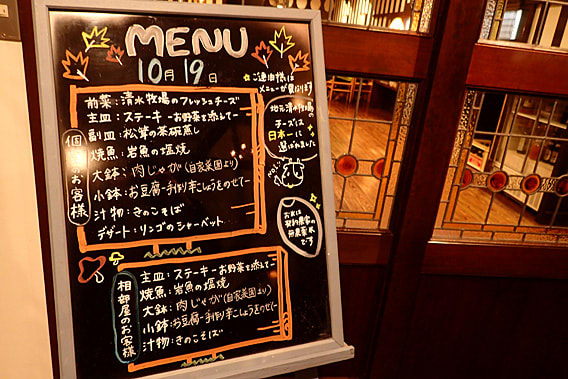 MENU
10月19日
ご連泊様は
メニューが異なります
個室のお客様
前菜:清水牧場のフレッシュチーズ
主皿:ステーキーお野菜を添えてー
副皿:松茸の茶碗蒸し
焼魚:岩魚の塩焼
大鉢:肉じゃが(自家菜園より)
小鉢:お豆腐-手作り辛こしょうをのせてー
汁物:きのこそば
デザート:リンゴのシャーベット
地元清水牧場の
チーズは
日本一に
選ばれました
NO.1
お米は
契約農家の
無農薬米
です
相部屋のお客様
主皿:ステーキーお野菜を添えてー
焼魚:岩魚の塩焼
大鉢:肉じゃが(自家菜園より)
小鉢:お豆腐-手作り辛こしょうをのせてー
汁物:きのこそば